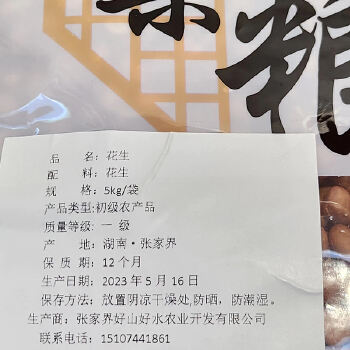 粮
品 名：花生
配 料：花生
规 格：5kg/袋
产品类型:初级农产品
质量等级：一级
产 地：湖南·张家界
保 质 期：12个月
生产日期：2023年5月16日
保存方法：放置阴凉干燥处,防晒，防潮湿。
生产商：张家界好山好水农业开发有限公司
联系电话：15107441861